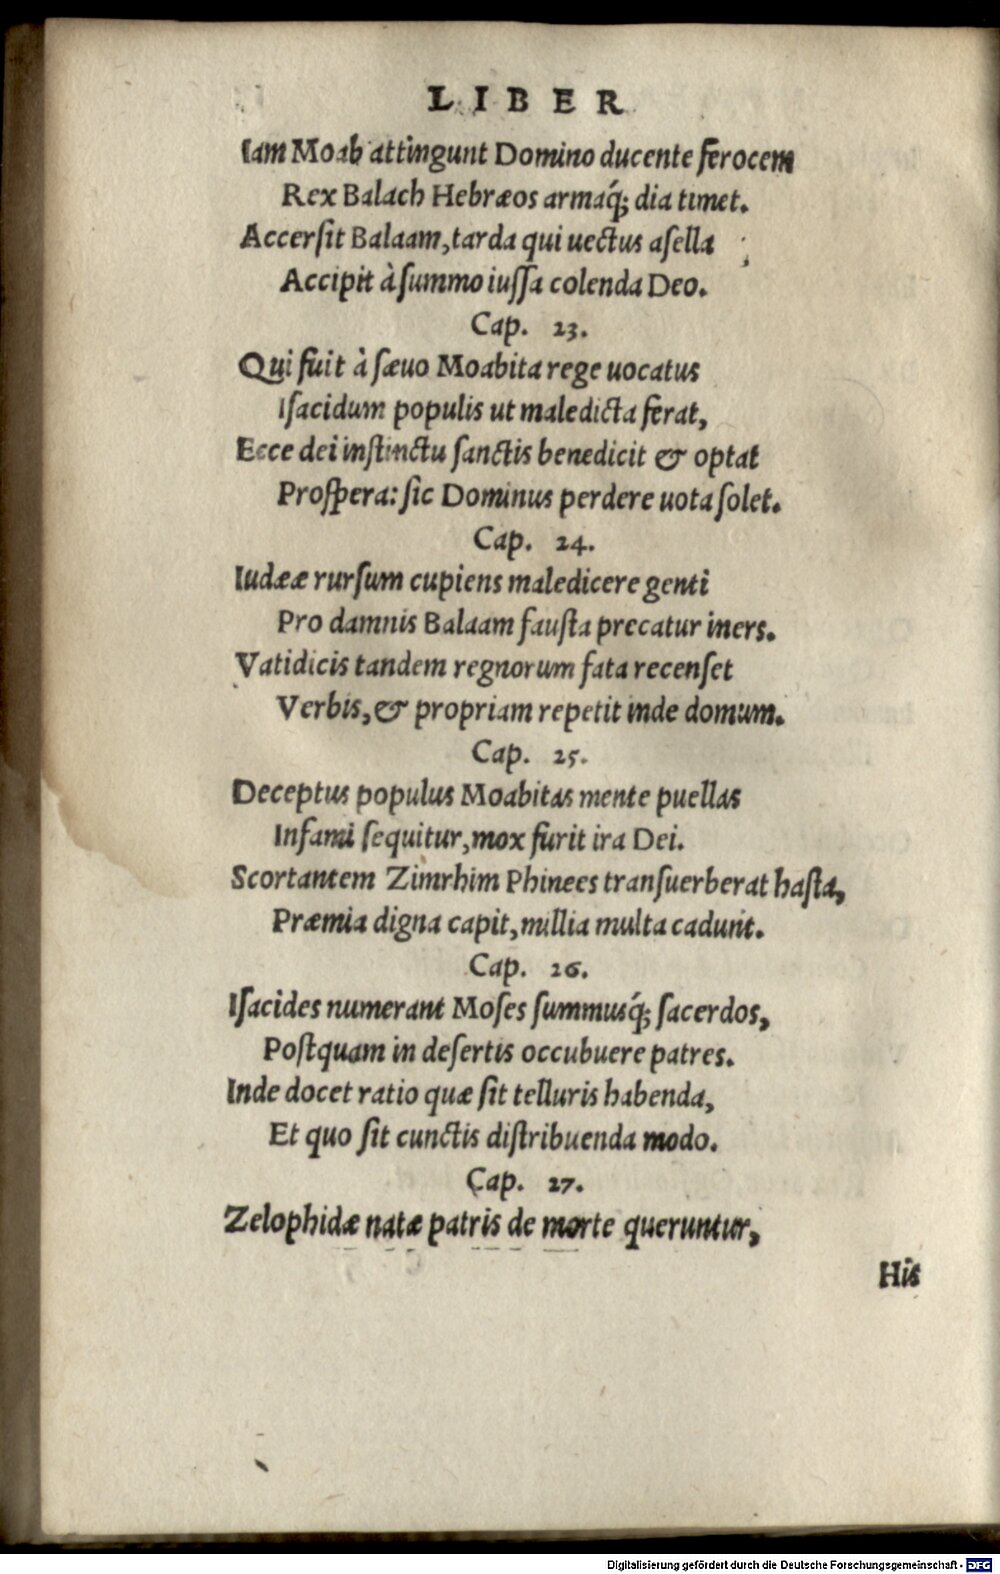 LIBER
Iam Moab attingunt Domino ducente ferocem
Rex Balach Hebræos armaq́; dia timet.
Accerſit Balaam, tarda qui uectus aſella
Accipit à ſummo iuſſa colenda Deo.
Cap. 23.
Qui fuit à ſæuo Moabita rege uocatus
Iſacidum populis ut maledicta ferat,
Ecce dei inſtinctu ſanctis benedicit & optat
Proſpera: ſic Dominus perdere uota ſolet.
Cap. 24.
Iudææ rurſum cupiens maledicere genti
Pro damnis Balaam fauſta precatur iners.
Vatidicis tandem regnorum fata recenſet
Verbis, & propriam repetit inde domum.
Cap. 25.
Deceptus populus Moabitas mente puellas
Infami ſequitur, mox furit ira Dei.
Scortantem Zimrhim Phinees tranſuerberat haſta,
Præmia digna capit, millia multa cadunt.
Cap. 26.
Iſacides numerant Moſes ſummusq́; ſacerdos,
Poſtquam in deſertis occubuere patres.
Inde docet ratio quæ ſit telluris habenda,
Et quo ſit cunctis diſtribuenda modo.
Cap. 27.
Zelophidæ natæ patris de morte queruntur,
His
Digitalisierung gefördert durch die Deutsche Forschungsgemeinschaft - DFG